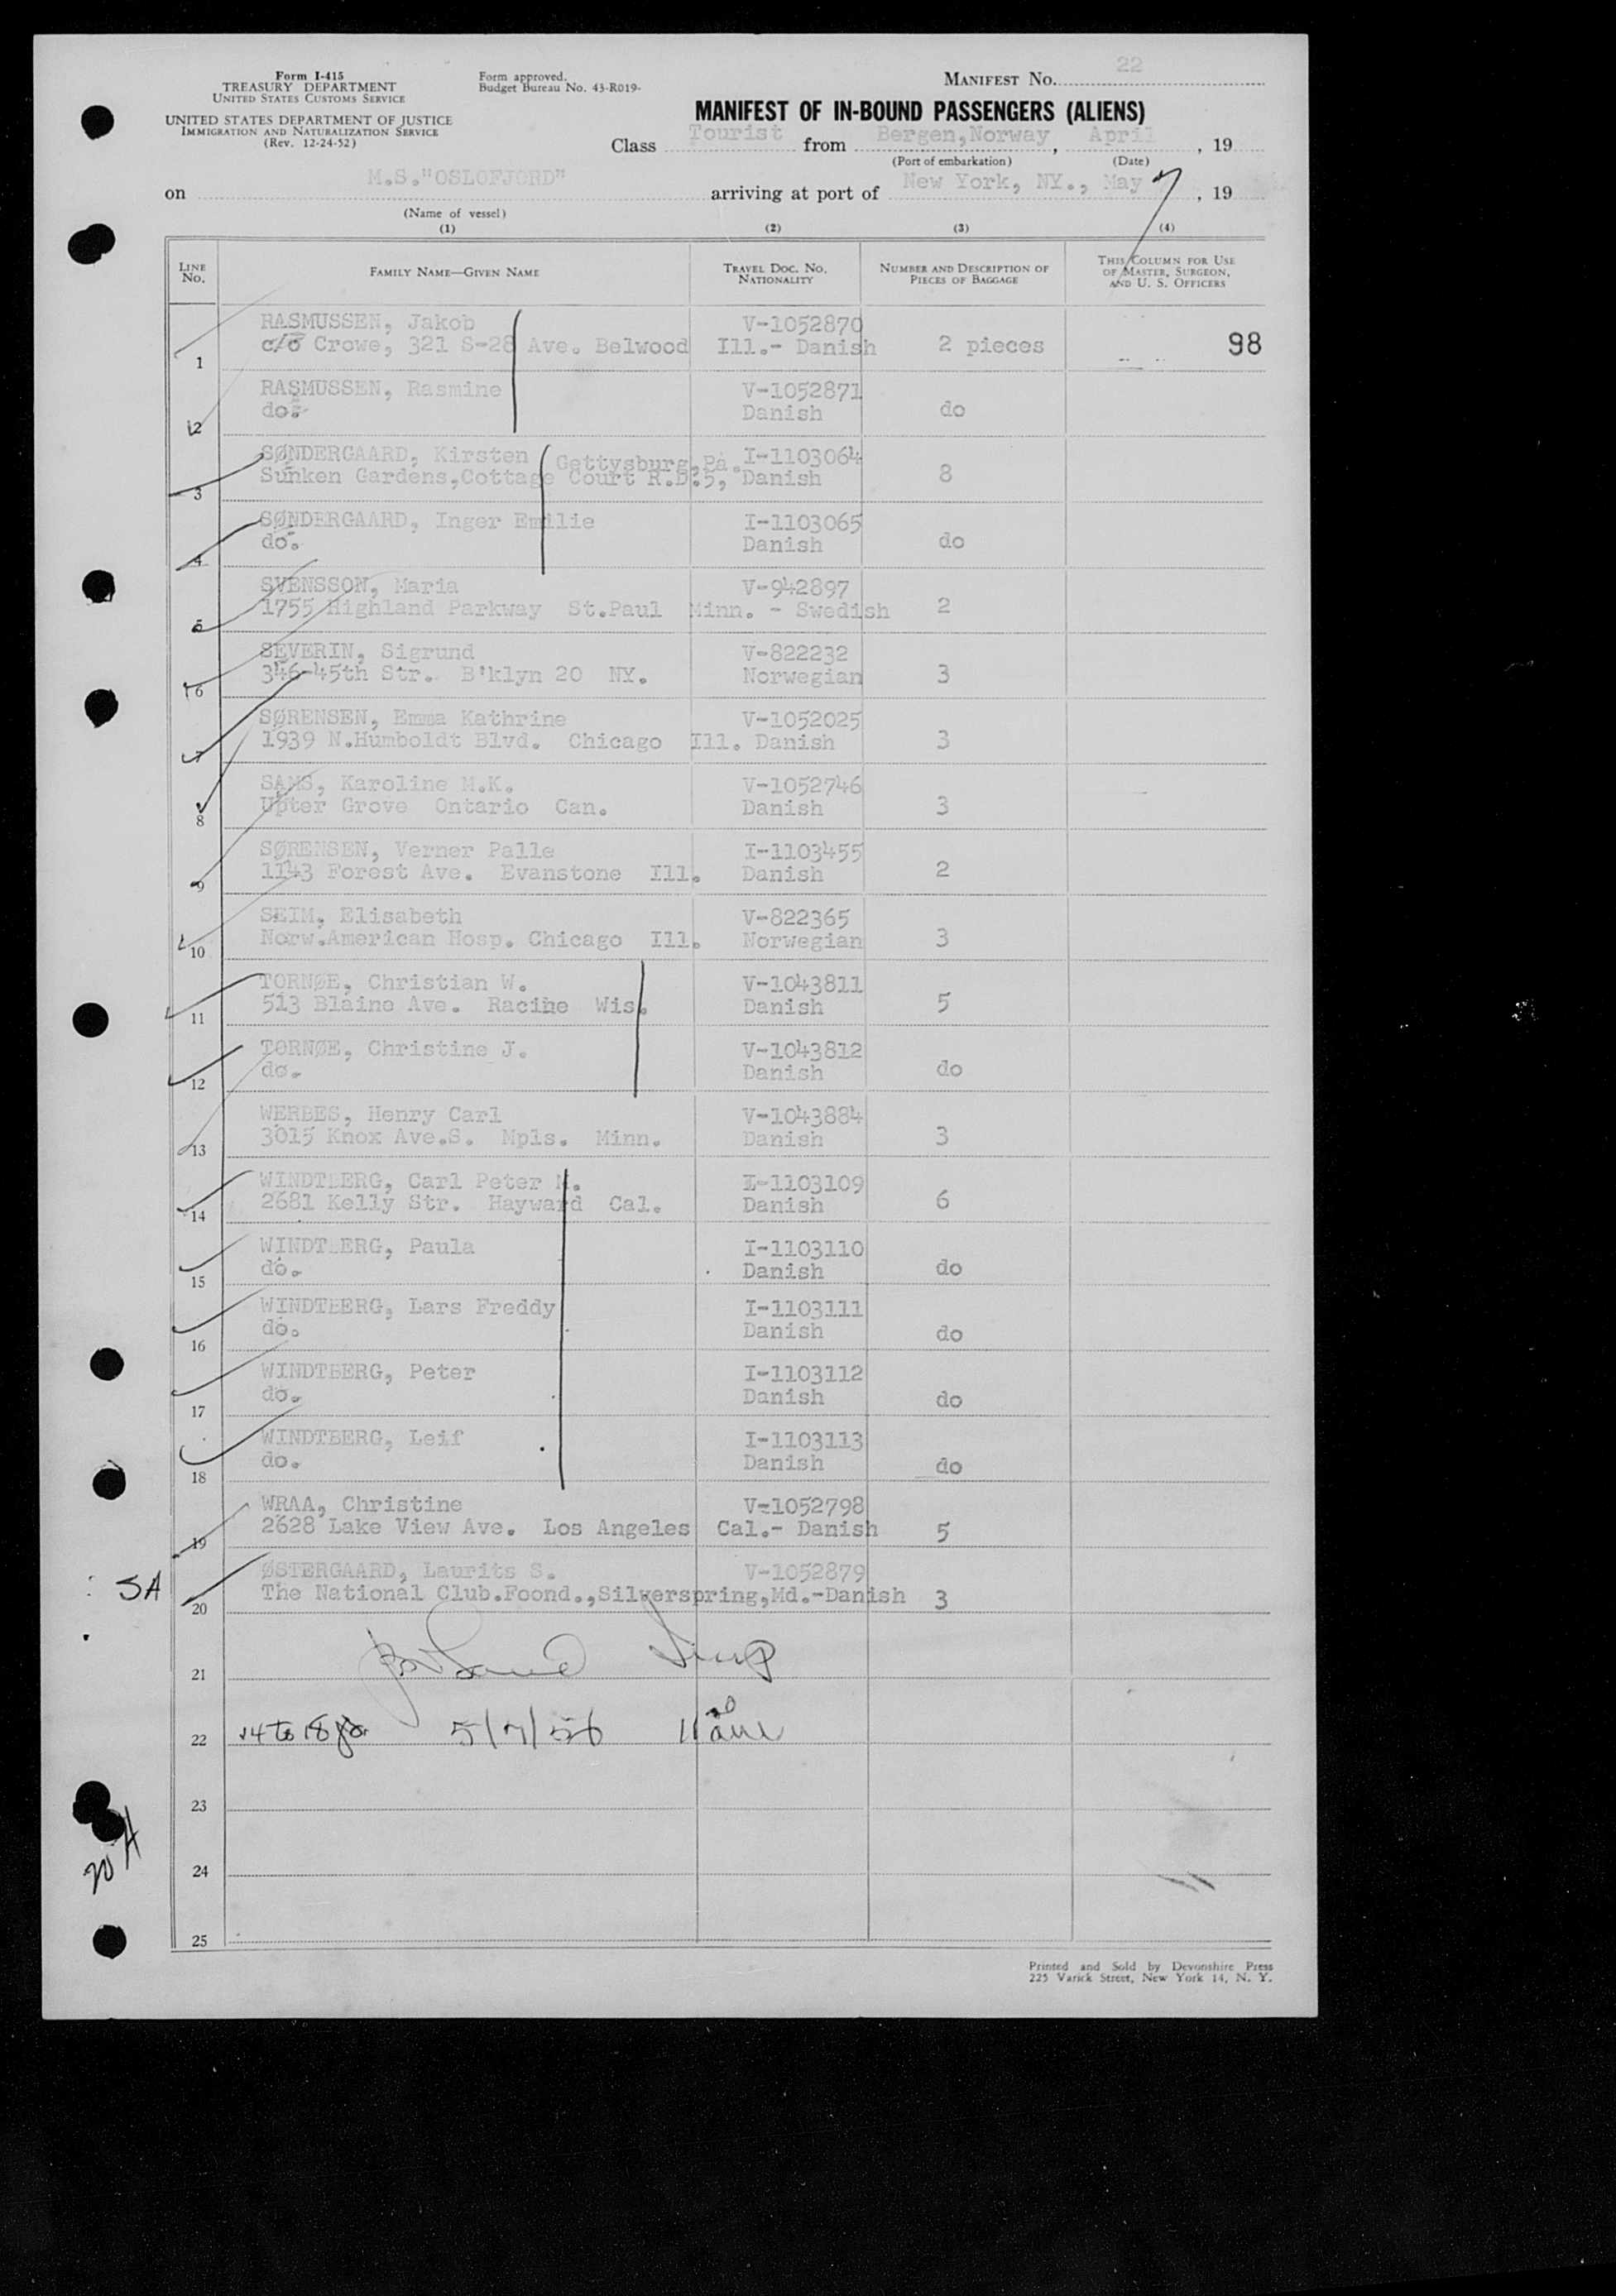 Form I-415
TREASURY DEPARTMENT
UNITED STATES CUSTOMS SERVICE
UNITED STATES DEPARTMENT OF JUSTICE
IMMIGRATION AND NATURALIZATION SERVICE
(Rev. 12-24-52)
Form approved.
Budget Bureau No. 43-R019-
MANIFEST NO. 22
MANIFEST OF IN-BOUND PASSENGERS (ALIENS)
Class Tourist from Bergen,Norway, April, 19
(Port of embarkation) (Date)
on M.S."OSLOFJORD" arriving at port of New York, NY., May 7, 19
(Name of vessel)
(1) (2) (3) (4)
LINE NO. FAMILY NAME—GIVEN NAME TRAVEL DOC. NO. NATIONALITY NUMBER AND DESCRIPTION OF PIECES OF BAGGAGE THIS COLUMN FOR USE OF MASTER, SURGEON, AND U. S. OFFICERS
RASMUSSEN, Jakob V-1052870
1 c/o Crowe, 321 S-28 Ave. Belwood Ill.- Danish 2 pieces 98
RASMUSSEN, Rasmine V-1052871
2 do. Danish do
SØNDERGAARD, Kirsten Gettysburg,Pa. I-1103064
3 Sunken Gardens,Cottage Court R.D.5, Danish 8
SØNDERGAARD, Inger Emilie I-1103065
4 do. Danish do
SVENSSON, Maria V-942897
5 1755 Highland Parkway St.Paul Minn. - Swedish 2
SEVERIN, Sigrund V-822232
6 346-45th Str. B'klyn 20 NY. Norwegian 3
SØRENSEN, Emma Kathrine V-1052025
7 1939 N.Humboldt Blvd. Chicago Ill. Danish 3
SAMS, Karoline M.K. V-1052746
8 Upter Grove Ontario Can. Danish 3
SØRENSEN, Verner Palle I-1103455
9 1143 Forest Ave. Evanstone Ill. Danish 2
SEIM, Elisabeth V-822365
10 Norw.American Hosp. Chicago Ill. Norwegian 3
TORNØE, Christian W. V-1043811
11 513 Blaine Ave. Racine Wis. Danish 5
TORNØE, Christine J. V-1043812
12 do. Danish do
WERBES, Henry Carl V-1043884
13 3015 Knox Ave.S. Mpls. Minn. Danish 3
WINDTBERG, Carl Peter M. I-1103109
14 2681 Kelly Str. Hayward Cal. Danish 6
WINDTBERG, Paula I-1103110
15 do. Danish do
WINDTBERG, Lars Freddy I-1103111
16 do. Danish do
WINDTBERG, Peter I-1103112
17 do. Danish do
WINDTBERG, Leif I-1103113
18 do. Danish do
WRAA, Christine V-1052798
19 2628 Lake View Ave. Los Angeles Cal.- Danish 5
ØSTERGAARD, Laurits S. V-1052879
SA 20 The National Club.Foond.,Silverspring,Md.-Danish 3
21
22 14 to 18 5/7/56
23
24
25
Printed and Sold by Devonshire Press
225 Varick Street, New York 14, N. Y.